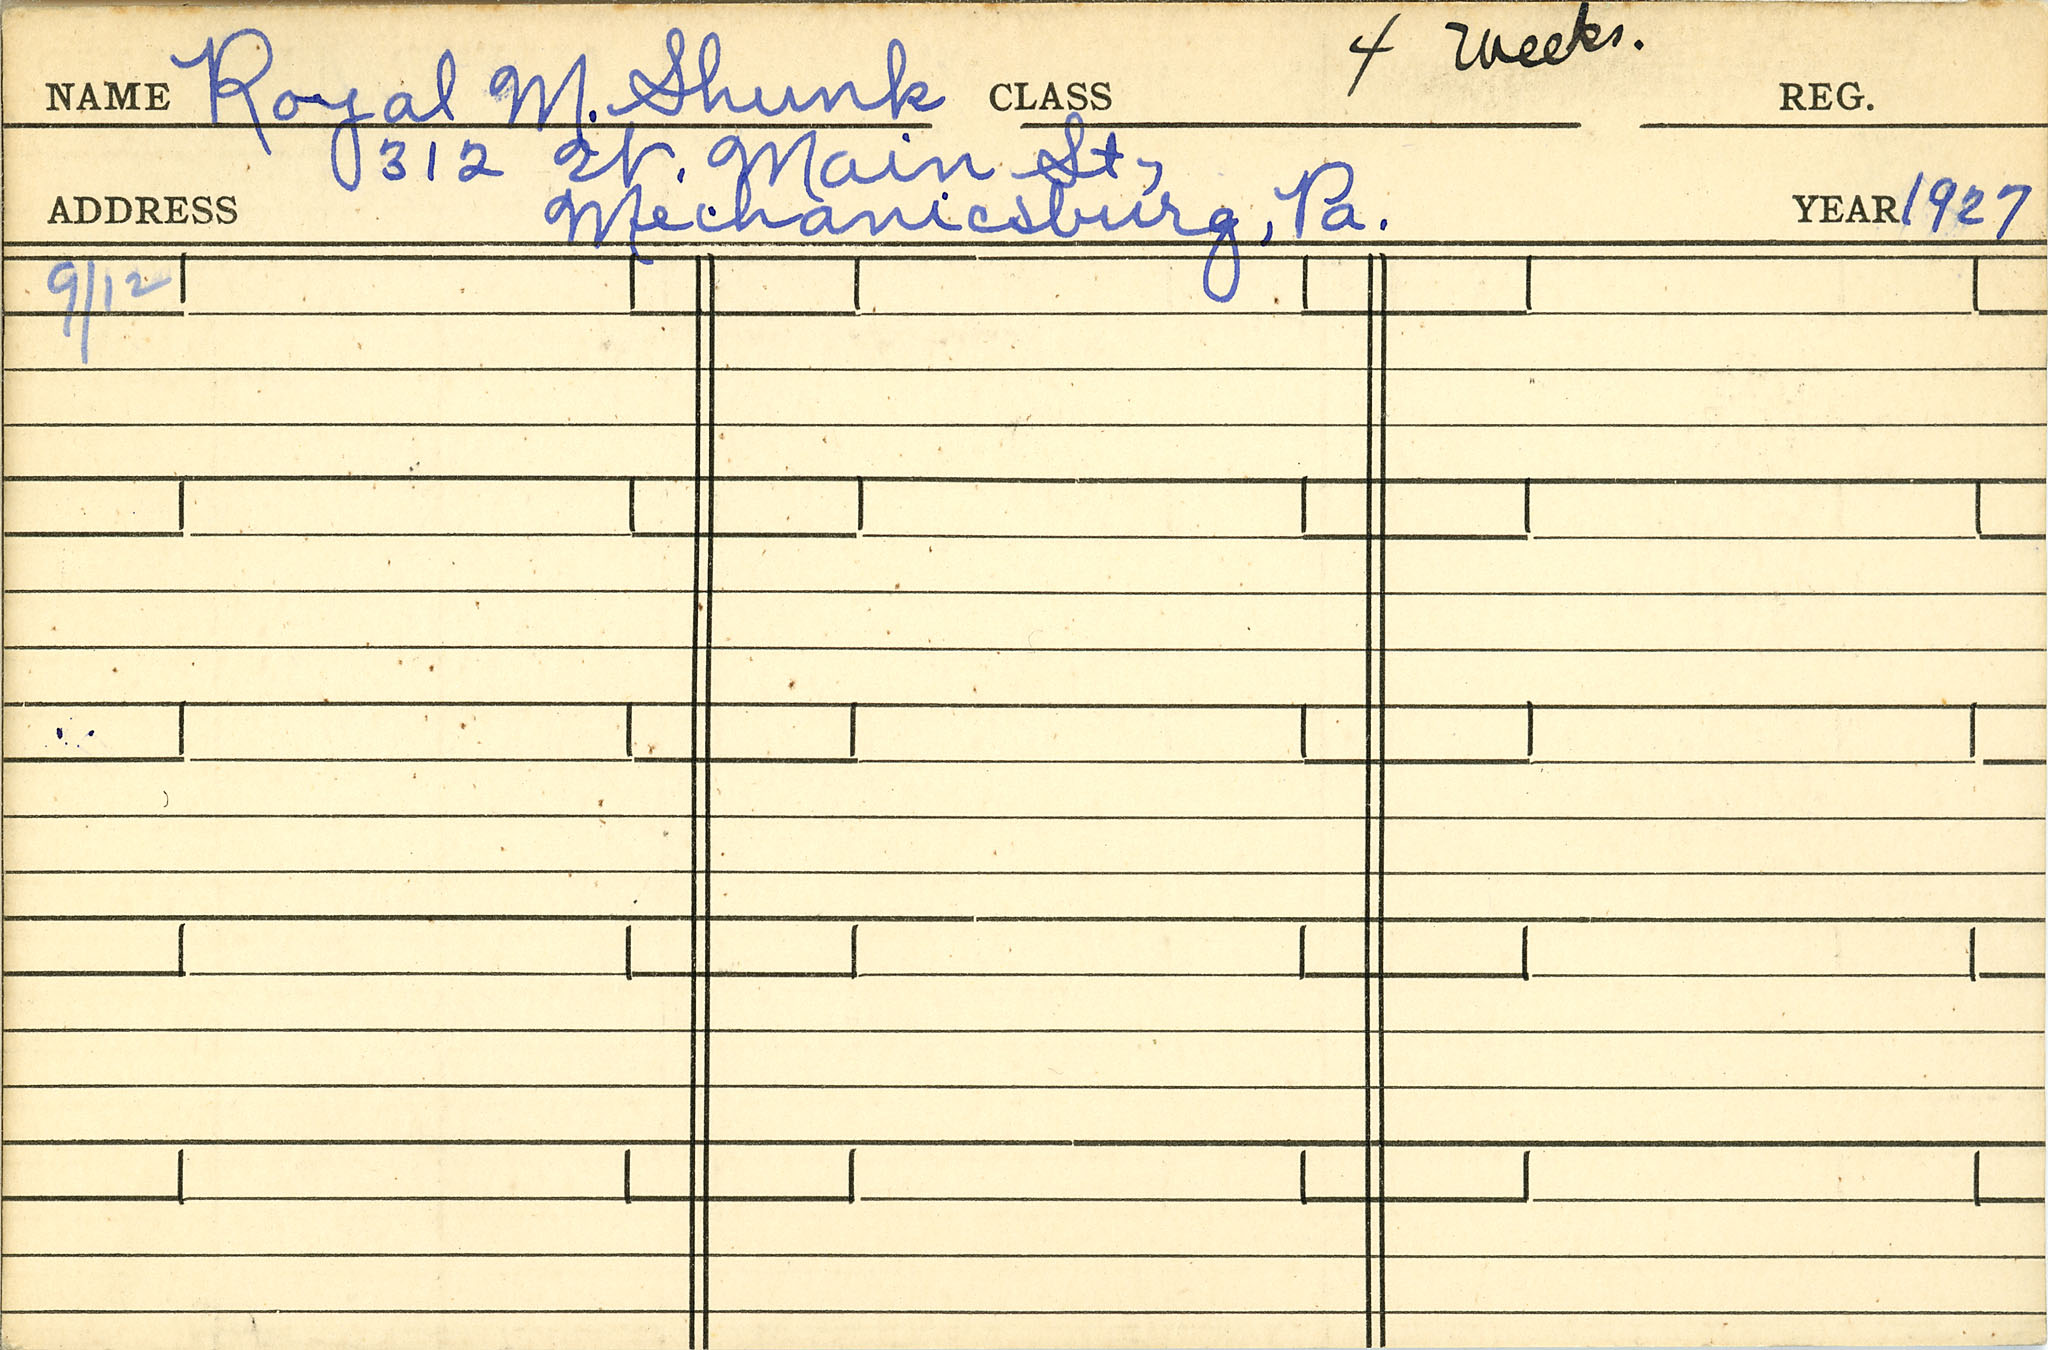 NAME Royal M. Shunk CLASS 4 Weeks. REG.
312 W. Main St,
ADDRESS Mechanicsburg, Pa. YEAR 1927
9/12